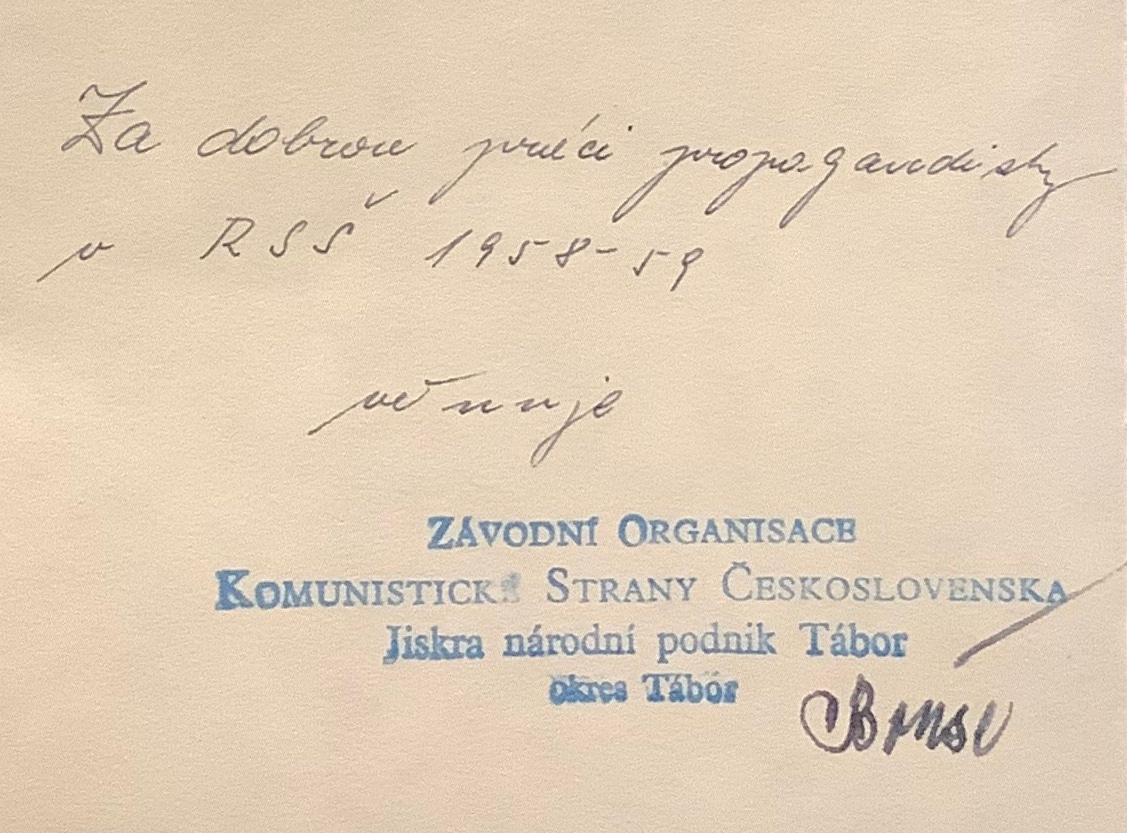 Za dobrou práci propagandisty
v RSŠ 1958-59
věnuje
ZÁVODNÍ ORGANISACE
KOMUNISTICKÉ STRANY ČESKOSLOVENSKA
Jiskra národní podnik Tábor
okres Tábor